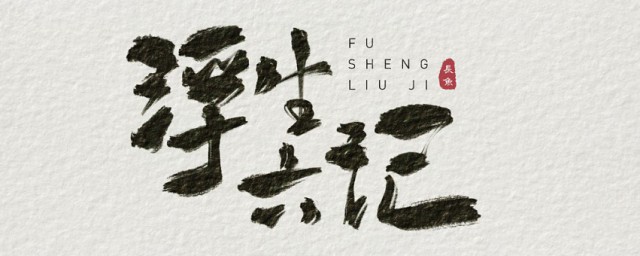 浮生
六记
FU
SHENG
LIU JI
長魚